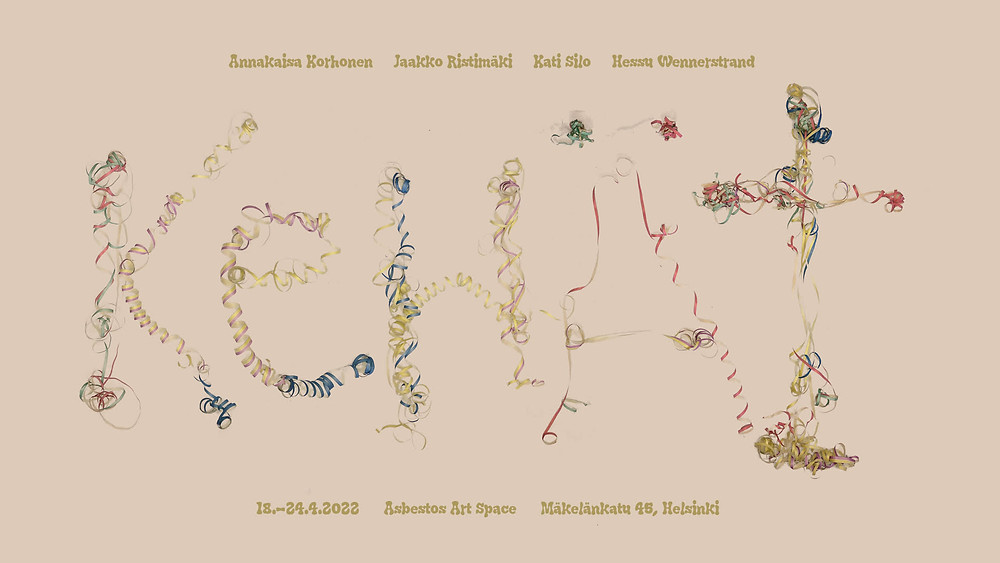 Annakaisa Korhonen Jaakko Ristimäki Kati Silo Hessu Wennerstrand
KeHÄt
18.–24.4.2022 Asbestos Art Space Mäkelänkatu 45, Helsinki